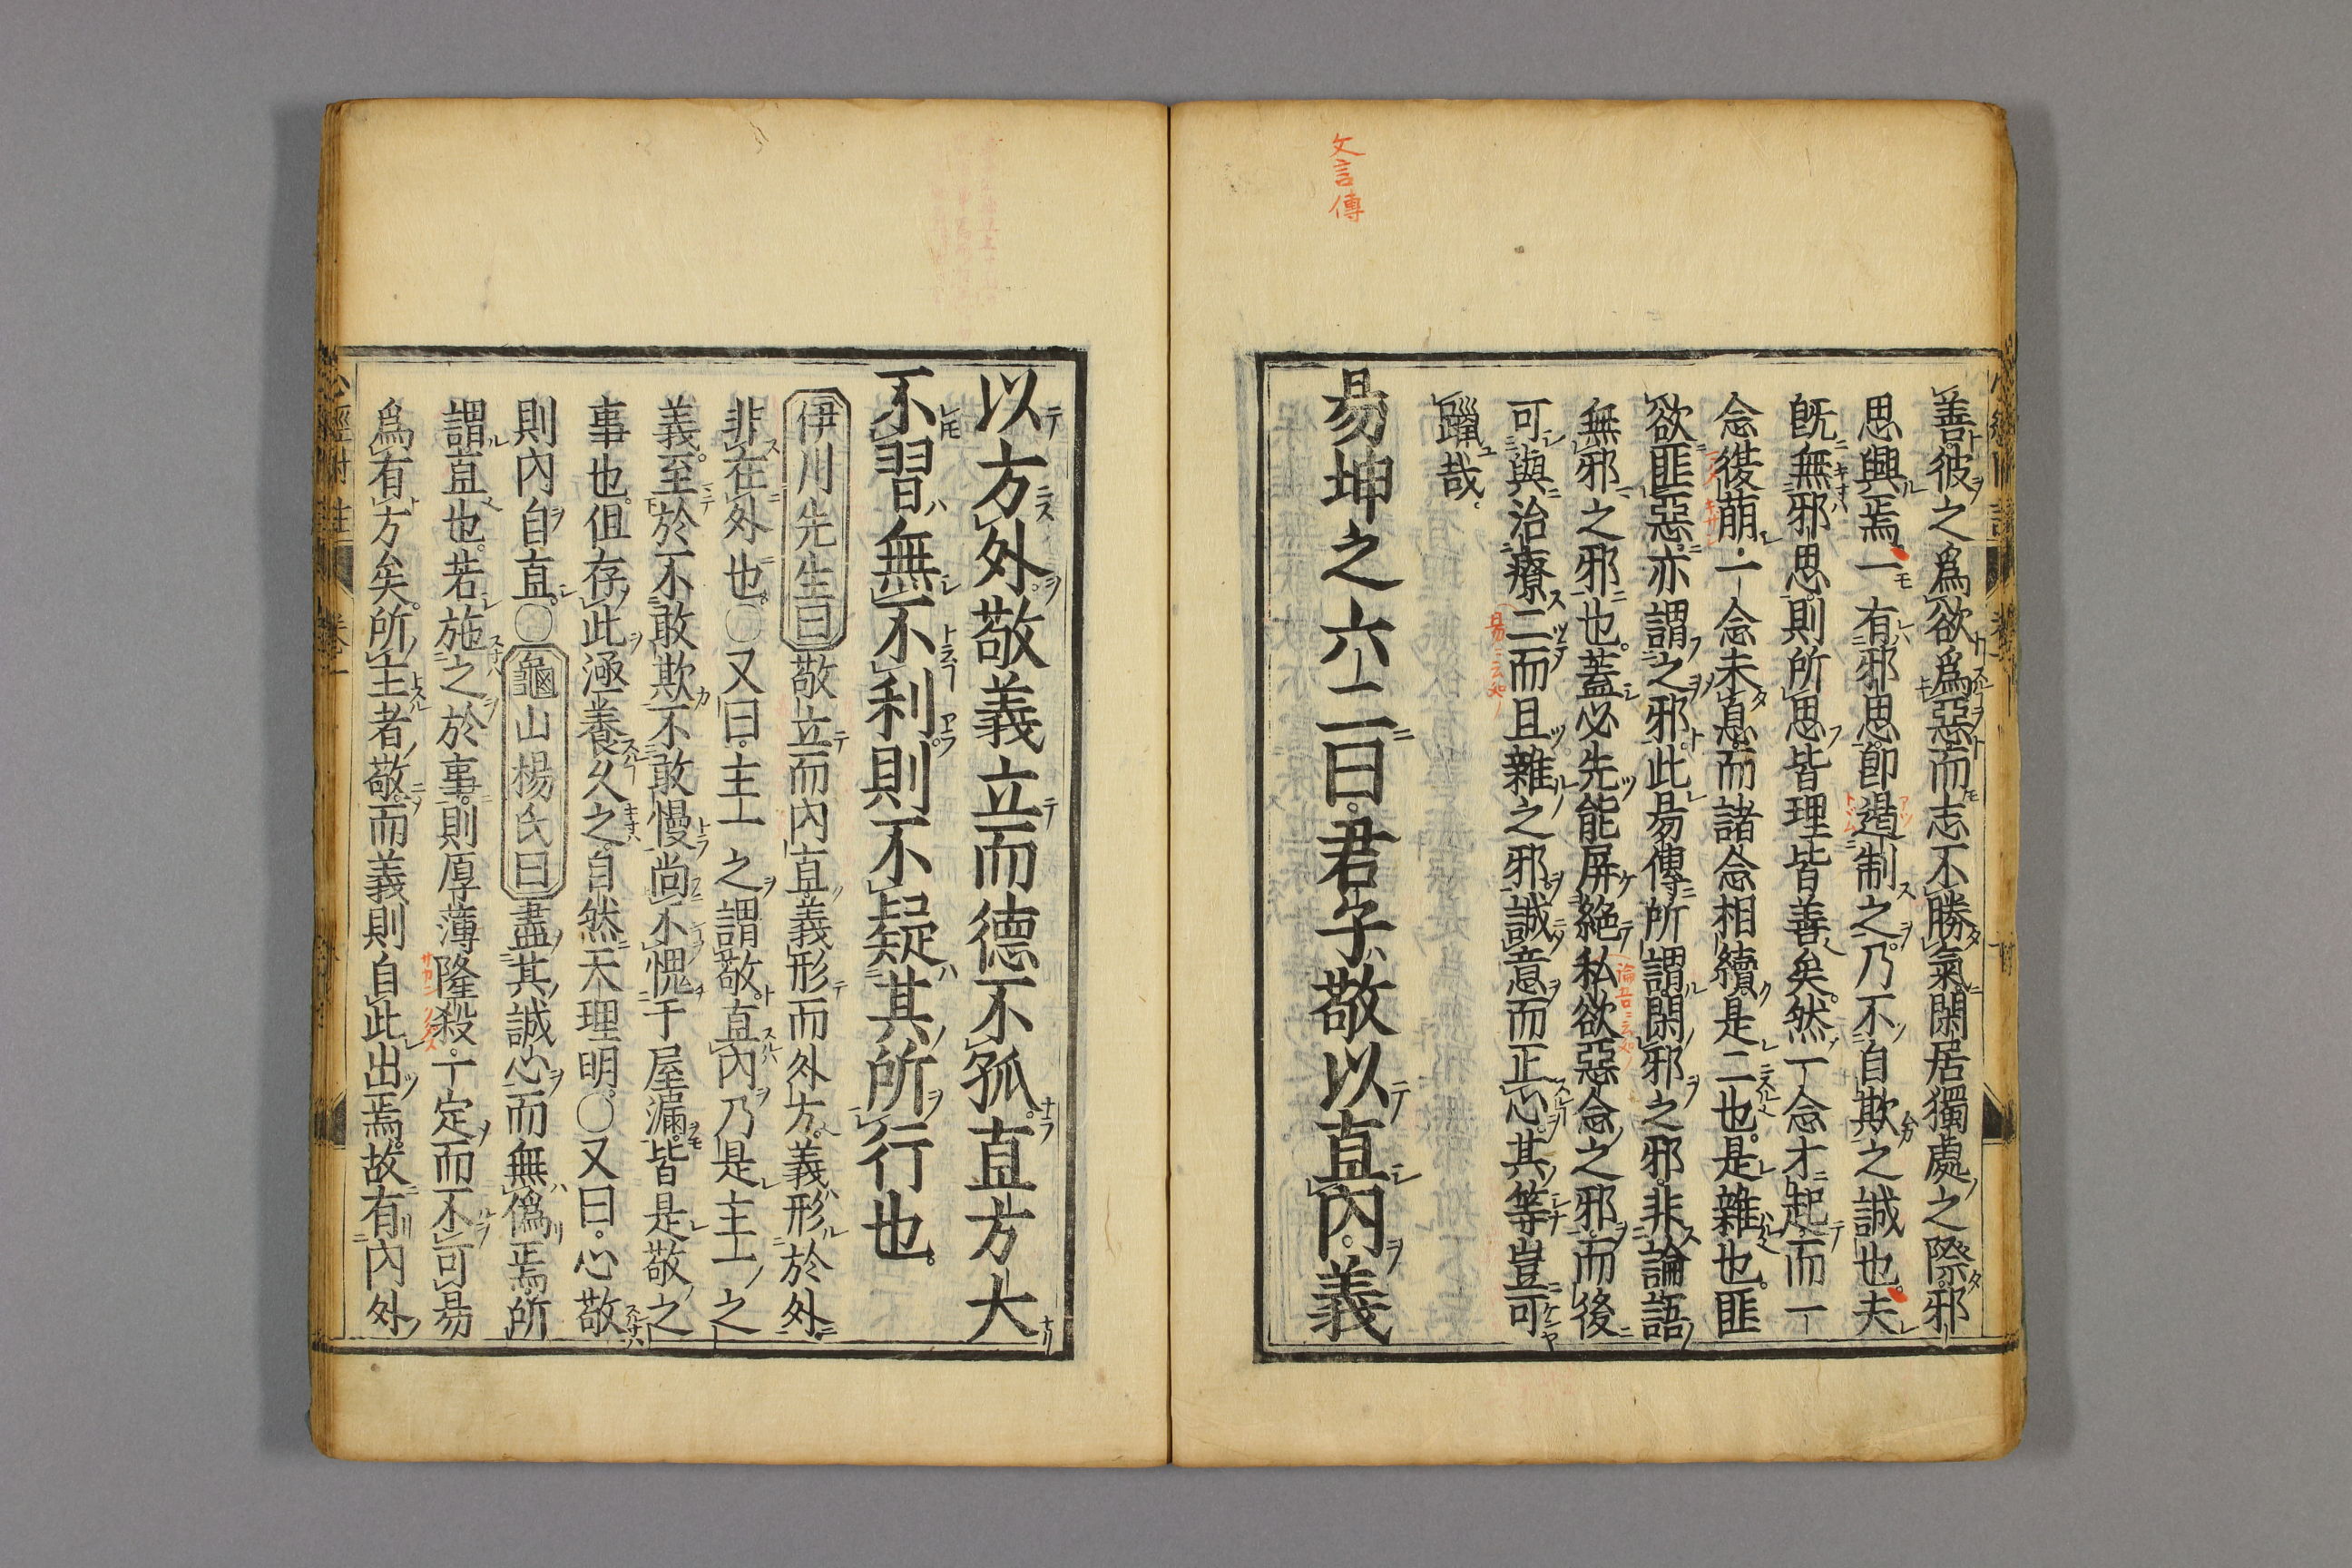 文言傳
善彼之爲欲爲惡而志不勝氣閑居獨處之際邪
思興焉一有邪思卽遏制之乃不自欺之誠也夫
旣無邪思則所思皆理皆善矣然一念才起而一
念復萠一念未息而諸念相續是二也是雜也匪
欲匪惡亦謂之邪此易傳所謂閑邪之邪非論語
無邪之邪也蓋必先能屏絶私欲惡念之邪而後
可與治療二而且雜之邪誠意而正心其等豈可
躐哉
易坤之六二曰君子敬以直內義
以方外敬義立而德不孤直方大
不習無不利則不疑其所行也
伊川先生曰敬立而內直義形而外方義形於外
非在外也○又曰主一之謂敬直內乃是主一之
義至於不敢欺不敢慢尚不愧于屋漏皆是敬之
事也但存此涵養久之自然天理明○又曰心敬
則內自直○龜山楊氏曰盡其誠心而無僞焉所
謂直也若施之於事則厚薄隆殺一定而不可易
爲有方矣所主者敬而義則自此出焉故有內外
心經附註 卷一